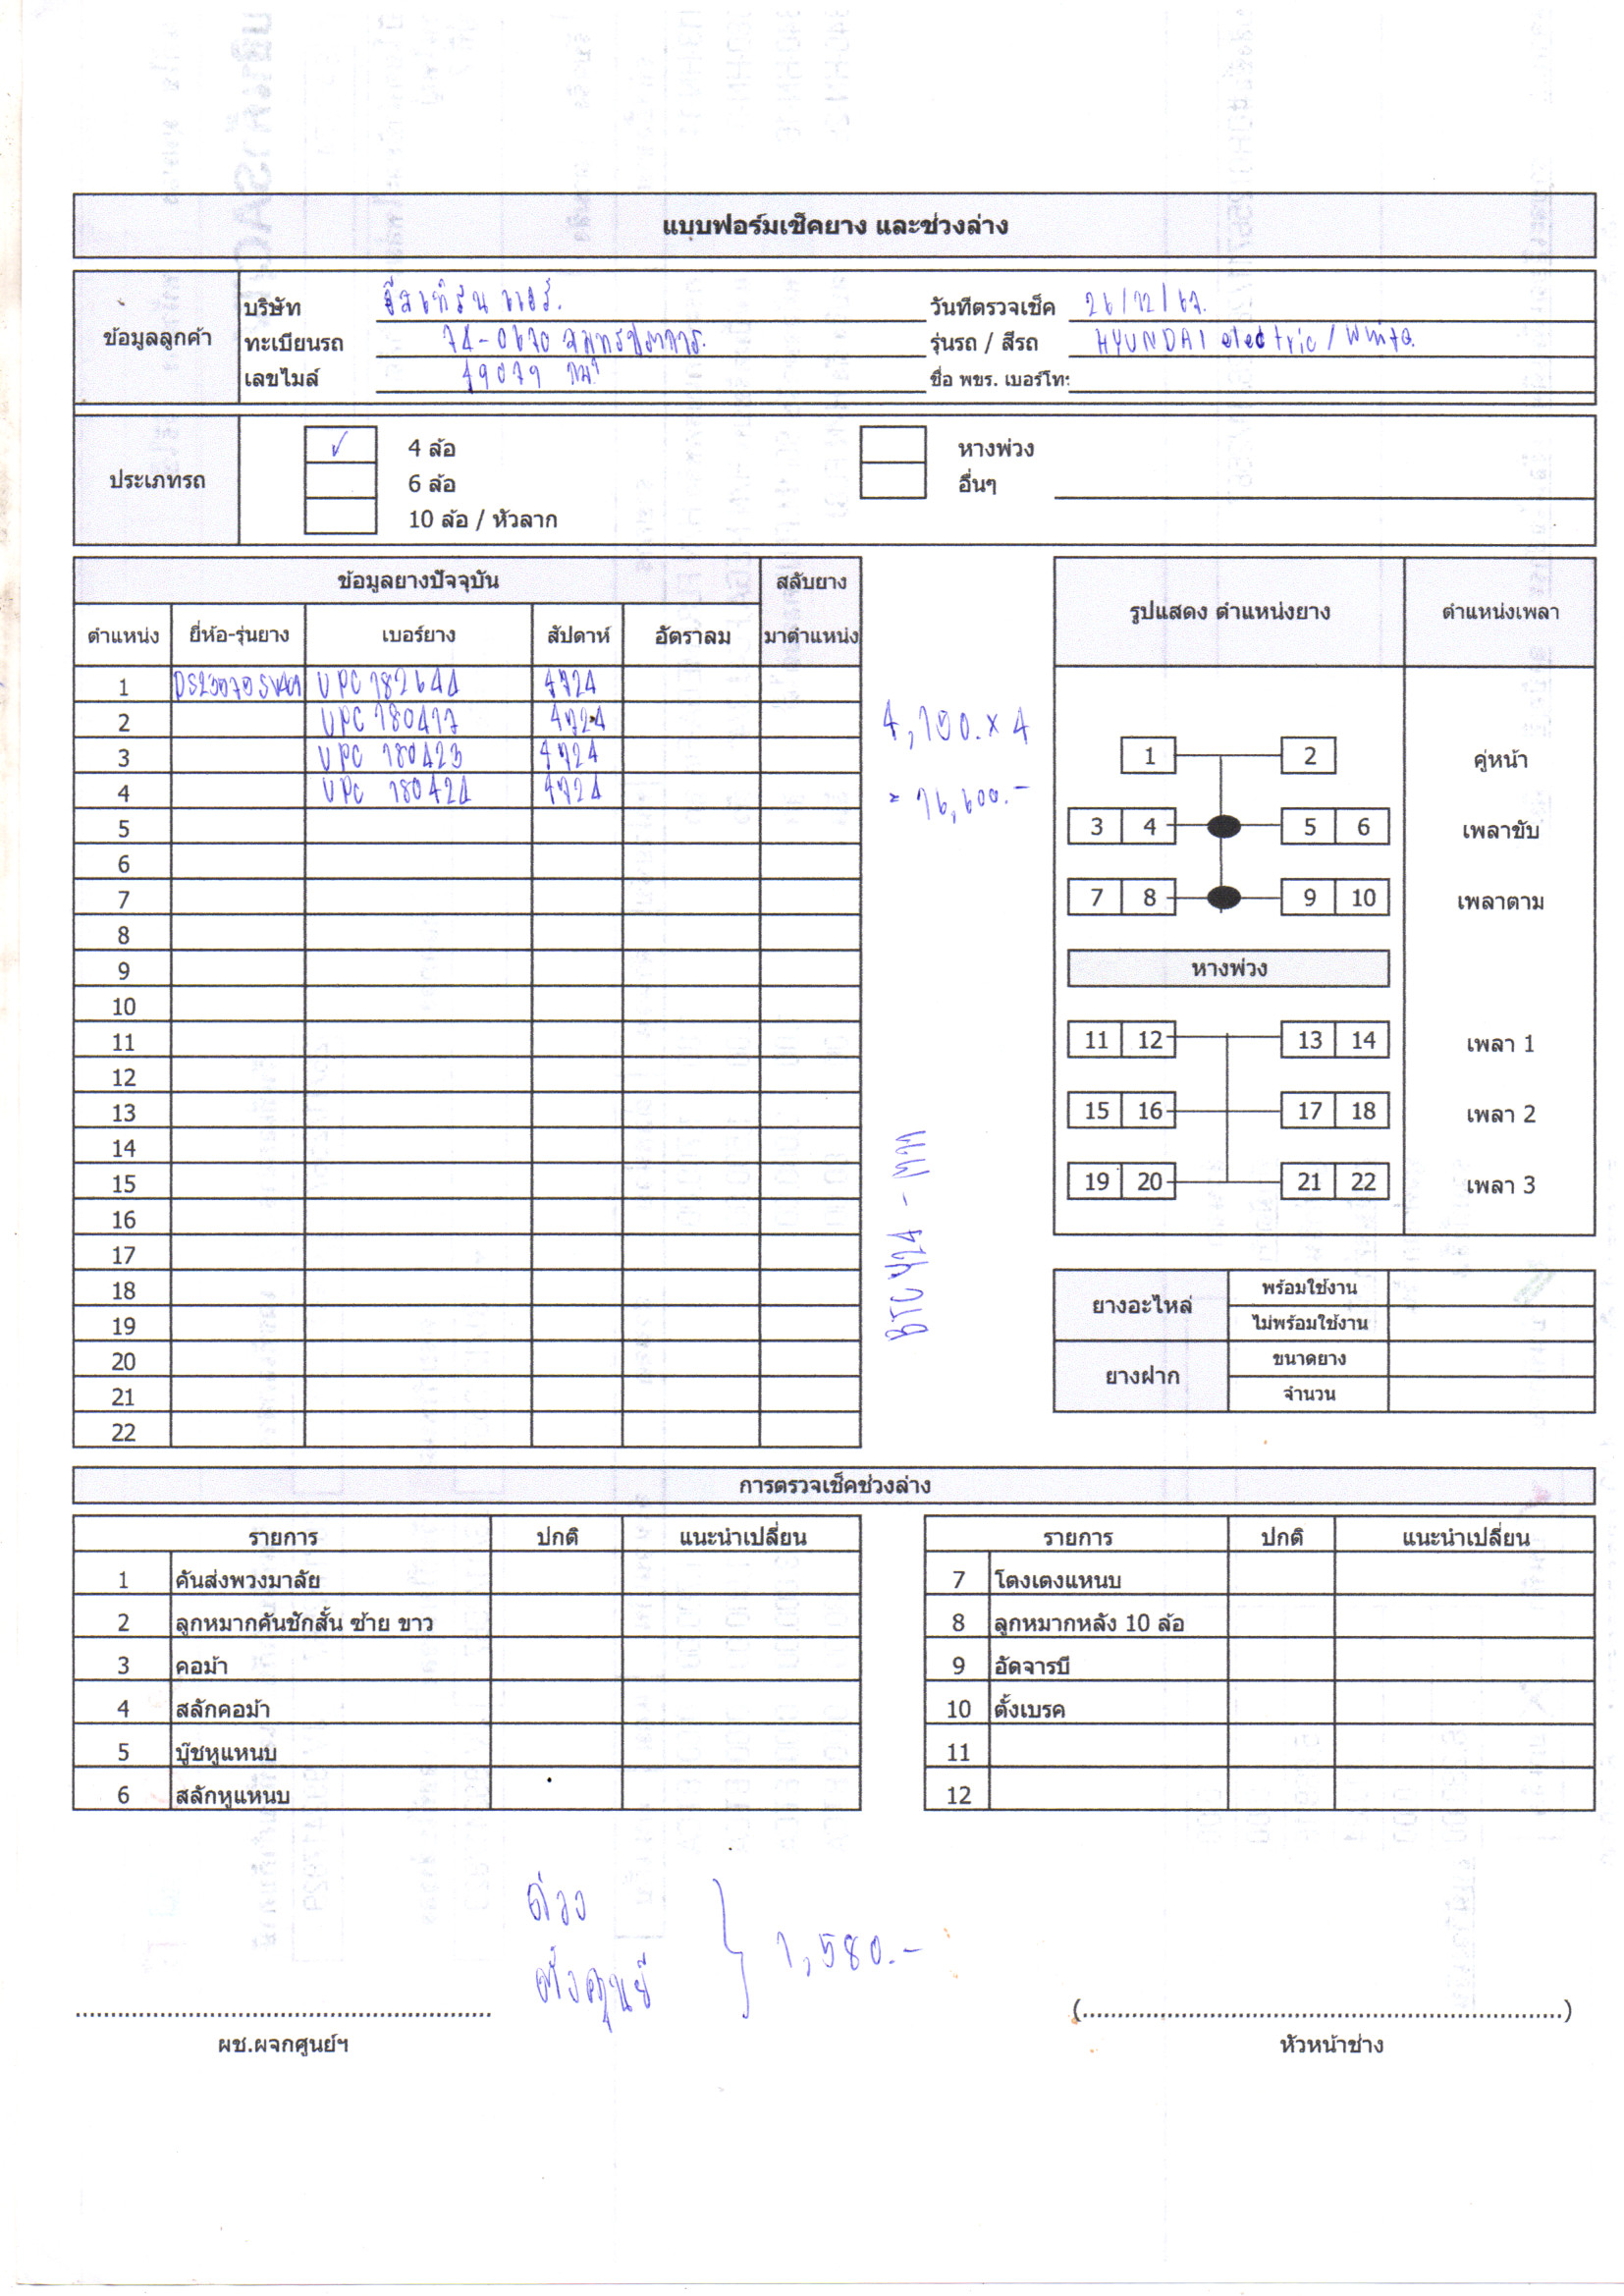 แบบฟอร์มเช็คยาง และช่วงล่าง
ข้อมูลลูกค้า
บริษัท อีสเทิร์น แอร์.
วันที่ตรวจเช็ค 26/12/67.
ทะเบียนรถ 74-0670 สมุทรปราการ.
รุ่นรถ / สีรถ HYUNDAI electric / White
เลขไมล์ 49079 กม.
ชื่อ พขร. เบอร์โทร
ประเภทรถ
✓ 4 ล้อ
6 ล้อ
10 ล้อ / หัวลาก
หางพ่วง
อื่นๆ
ข้อมูลยางปัจจุบัน สลับยาง
ตำแหน่ง ยี่ห้อ-รุ่นยาง เบอร์ยาง สัปดาห์ อัตราลม มาตำแหน่ง
1 UPC 182644 4724
2 UPC 180417 4724
3 UPC 180423 4724
4 UPC 180424 4724
5
6
7
8
9
10
11
12
13
14
15
16
17
18
19
20
21
22
= 16,600.-
รูปแสดง ตำแหน่งยาง ตำแหน่งเพลา
1 2 คู่หน้า
3 4 5 6 เพลาขับ
7 8 9 10 เพลาตาม
หางพ่วง
11 12 13 14 เพลา 1
15 16 17 18 เพลา 2
19 20 21 22 เพลา 3
ยางอะไหล่ พร้อมใช้งาน
ไม่พร้อมใช้งาน
ยางฝาก ขนาดยาง
จำนวน
การตรวจเช็คช่วงล่าง
รายการ ปกติ แนะนำเปลี่ยน
1 คันส่งพวงมาลัย
2 ลูกหมากคันชักสั้น ซ้าย ขาว
3 คอม้า
4 สลักคอม้า
5 บู๊ชหูแหนบ
6 สลักหูแหนบ
รายการ ปกติ แนะนำเปลี่ยน
7 โตงเตงแหนบ
8 ลูกหมากหลัง 10 ล้อ
9 อัดจารบี
10 ตั้งเบรค
11
12
ถ่วง
ตั้งศูนย์
1,580.-
ผช.ผจกศูนย์ฯ
(
)
หัวหน้าช่าง